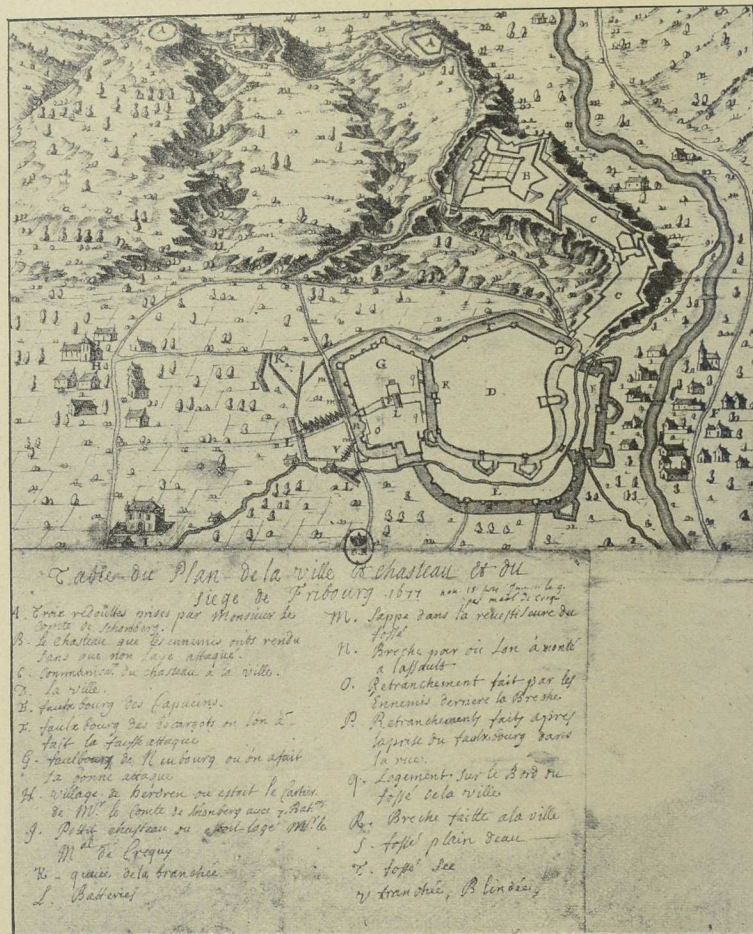 Table du Plan de la ville et chasteau et du
siege de Fribourg 1677
A. Trois redouttes prises par Monsieur le
Comte de Schomberg.
B. le chasteau que les ennemis onts rendu
sans que non laye attaqué.
C. Communica. du chasteau a la ville.
D. la ville.
E. faulx bourg des Capucins.
F. faulx bourg des Escargots ou lon à
fait la fausse attaque
G. faulbourg de Neubourg ou on afait
la bonne attaque
H. village de herdren ou estoit le Cartier
de Mr. le Comte de Shonberg avec 7. Bat.ons
J. Petit chasteau ou estoit logé Mr. le
Mal de Crequy
K. queüe de la tranchée
L. Batteries
M. Sappe dans la
fossé
N. Breche par où Lon à monté
a lassault
O. Retranchement fait par les
Ennemis derriere la Breche
P. Retranchements faits apres
laprise du faulxbourg dans
la rue.
q. Logement sur le Bord du
fossé de la ville
R. Breche faitte ala ville
S. fossé plain deau
T. fossé sec
V tranchée, Blindée,
A
A
A
B
C
C
T
G
K
D
E
L
K
H
L
L
V
L
F
L
S